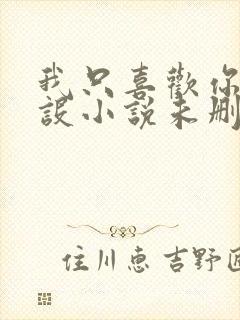 我只喜歡你
設小說未刪
住川惠 吉野